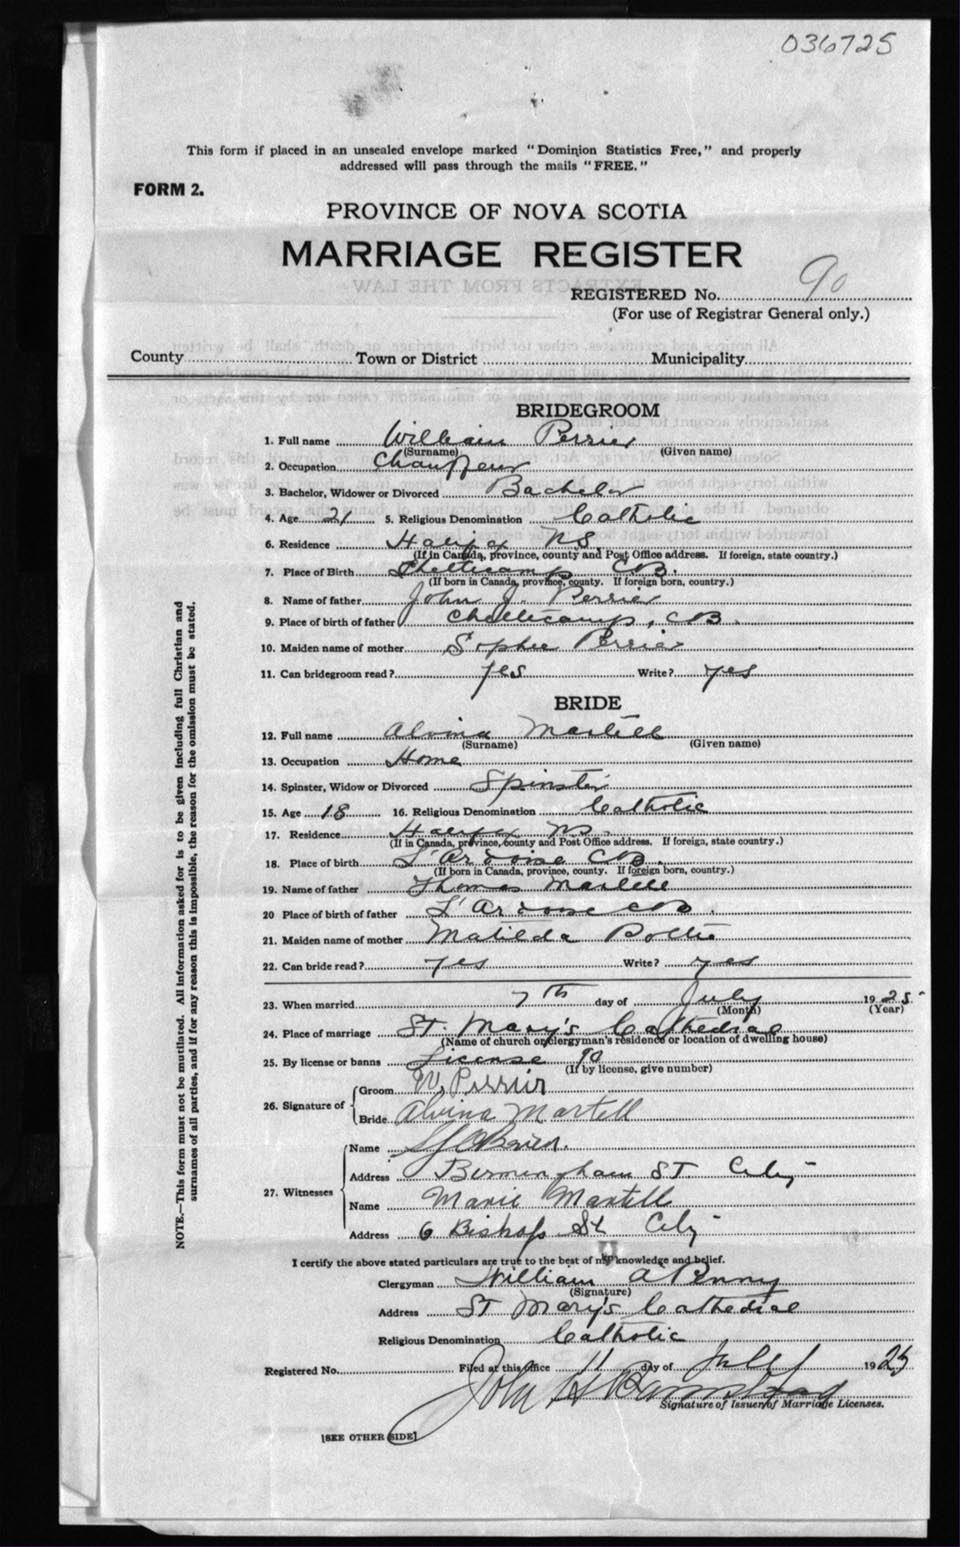 036725
This form if placed in an unsealed envelope marked "Dominion Statistics Free," and properly
addressed will pass through the mails "FREE."
FORM 2.
PROVINCE OF NOVA SCOTIA
MARRIAGE REGISTER
REGISTERED No. 90
(For use of Registrar General only.)
County Town or District Municipality
BRIDEGROOM
1. Full name William Perrier
(Surname) (Given name)
2. Occupation Chauffeur
3. Bachelor, Widower or Divorced Bachelor
4. Age 21 5. Religious Denomination Catholic
6. Residence Halifax NS
(If in Canada, province, county and Post Office address. If foreign, state country.)
7. Place of Birth CB.
(If born in Canada, province, county. If foreign born, country.)
8. Name of father John J. Perrier
9. Place of birth of father CB.
10. Maiden name of mother Sophie Perrier
11. Can bridegroom read? yes Write? yes
BRIDE
12. Full name Alvina Martell
(Surname) (Given name)
13. Occupation Home
14. Spinster, Widow or Divorced Spinster
15. Age 18 16. Religious Denomination Catholic
17. Residence Halifax NS.
(If in Canada, province, county and Post Office address. If foreign, state country.)
18. Place of birth L'Ardoise CB.
(If born in Canada, province, county. If foreign born, country.)
19. Name of father Thomas Martell
20 Place of birth of father L'Ardoise CB.
21. Maiden name of mother Matilda
22. Can bride read? yes Write? yes
23. When married 7th day of July 1925
(Month) (Year)
24. Place of marriage St. Mary's Cathedral
(Name of church or clergyman's residence or location of dwelling house)
25. By license or banns License 90
(If by license, give number)
26. Signature of Groom W. Perrier
Bride Alvina Martell
27. Witnesses Name O'Brien.
Address Birmingham St. City
Name Marie Martell
Address 6 Bishop St City
I certify the above stated particulars are true to the best of my knowledge and belief.
Clergyman William A Penny
(Signature)
Address St Mary's Cathedral
Religious Denomination Catholic
Registered No. Filed at this office 11 day of July 1925
John H
Signature of Issuer of Marriage Licenses.
[SEE OTHER SIDE]
NOTE.—This form must not be mutilated. All information asked for is to be given including full Christian and
surnames of all parties, and if for any reason this is impossible, the reason for the omission must be stated.